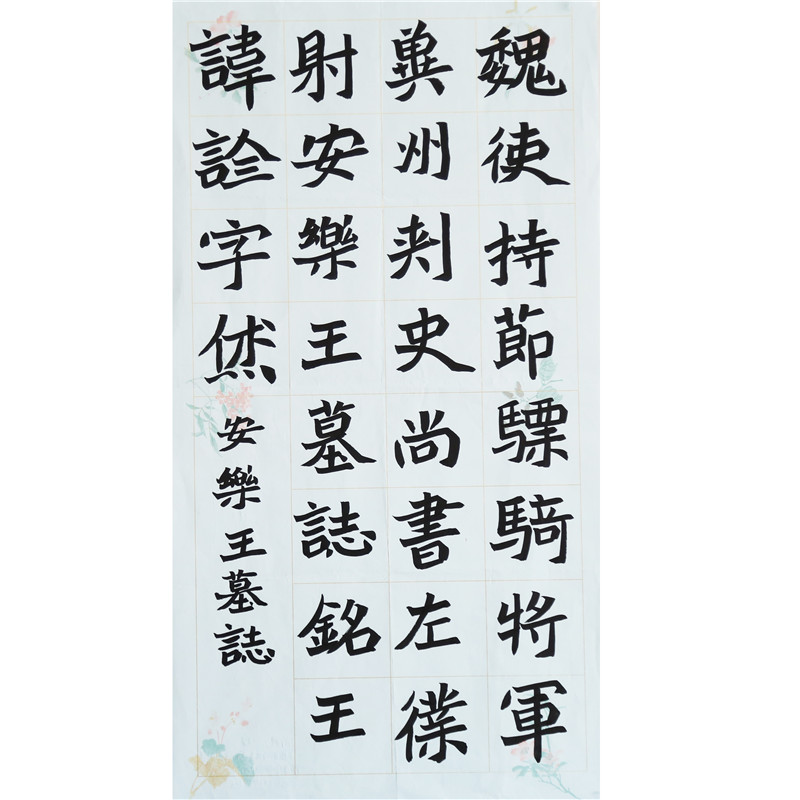 魏使持節驃騎將軍
冀州刾史尚書左僕
射安樂王墓誌銘王
諱詮字休
安樂王墓誌